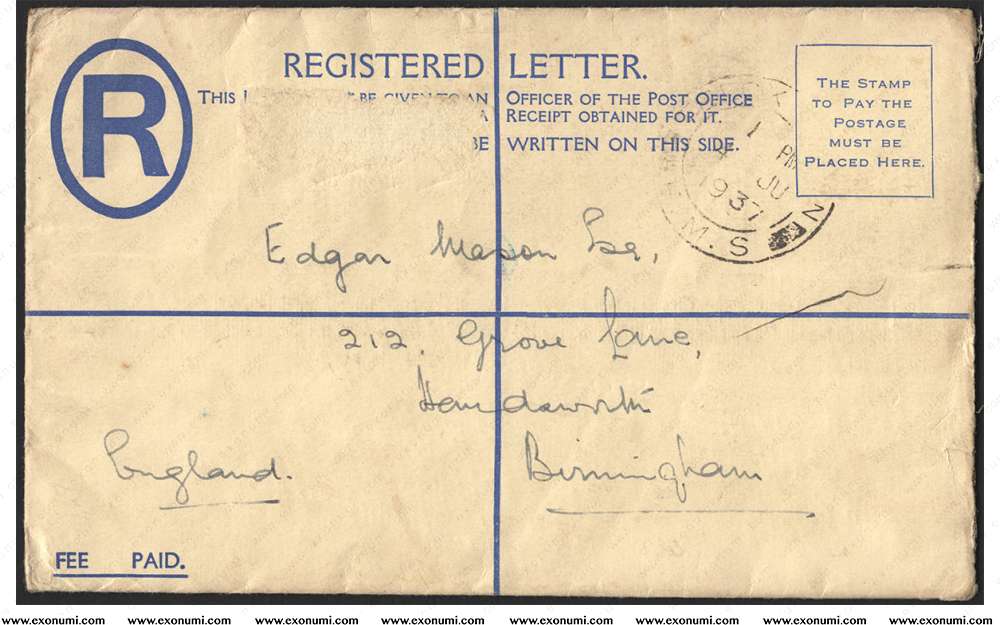 R
REGISTERED LETTER.
THIS BE GIVEN TO AN OFFICER OF THE POST OFFICE
A RECEIPT OBTAINED FOR IT.
BE WRITTEN ON THIS SIDE.
THE STAMP
TO PAY THE
POSTAGE
MUST BE
PLACED HERE.
1 PM
JU
1937
M.S
Edgar Mason Esq,
212. Grove Lane,
Handsworth
Birmingham
England.
FEE PAID.
www.exonumi.com www.exonumi.com www.exonumi.com www.exonumi.com www.exonumi.com www.exonumi.com www.exonumi.com www.exonumi.com